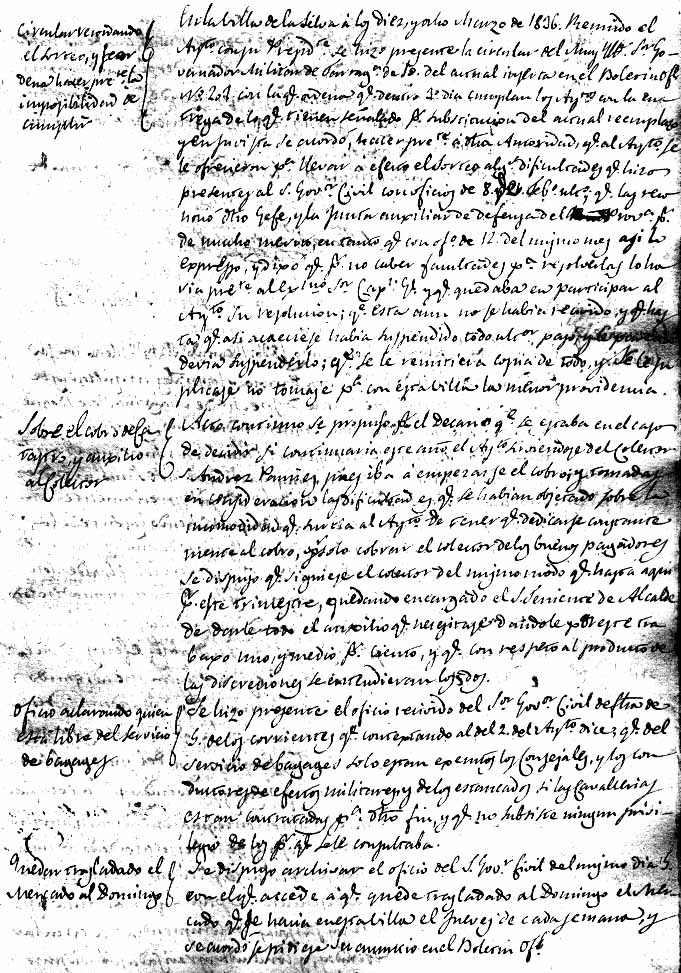 En la Villa de la Selva á los diez, y ocho Marzo de 1836. Reunido el
Circular recordando
el Sorteo, y se or
dena hacer pre.te la
imposibilidad de
cumplir
Ayto con su Presid.te Se hizo presente la circular del Muy Iltre Sor Go-
vernador Militar de Tarrag.a de 10. del actual inserta en el Boletin Ofl
No 20 con la q.e ordena q.e dentro 3o dia cumplan los Aytos con la en
trega de los q.e tienen señalado pr. substitucion del actual reemplazo
y en su vista se acordó, hacer pre.te á dha Autoridad, q.e al Ayto se
le ofrecieron pa. llevar a efecto el Sorteo algs dificultades q.e hizo
presentes al S. Govor Civil con oficios de 8. Feb.o ulto; q.e las reco
nocio dho Gefe, y la Junta auxiliar de defensa de Prov.a pr.
de mucho merito, en tanto q.e con ofo de 12. del mismo mes asi lo
expresó, y dijo q.e pr. no caber facultades pa. resolverlas lo ha
via pre.te al Exmo Sor Capn Gl. y q.e quedaba en participar al
Ayto su resolucion; q.e esta aun no se habia recivido, y q.e has
ta q.e asi acaeciese habia suspendido todo ulteor paso, y
devia suspenderlo; q.e se le remitiera copia de todo, y se le su
plicase no tomase pa. con esta villa la menor providencia.
Sobre el cobro de Ca
tastro, y auxilio
al Colector
Acto continuo se propuso pr. el decano q.e se estaba en el caso
de decidir si continuaria este año el Ayto sirviendose del Colector
Andres pues iba á empezarse el cobro; y tomadas
en consideracion las dificultades q.e se habian objetado sobre la
incomodidad q.e surtia al Ayto de tener q.e dedicarse constante
mente al cobro, solo cobrar el colector de los buenos pagadores
Se dispuso q.e siguiese el colector del mismo modo q.e hasta aqui
pr. este trimestre, quedando encargado el S. Teniente de Alcalde
de darle todo el auxilio q.e necesitase, dandole por este tra
baxo uno, y medio pr. ciento, y q.e con respeto al producto de
las discreciones se entendieran los dos.
Oficio aclarando quien
está libre del servicio
de bagages
Se hizo presente el oficio recivido del Sor Govor Civil de fha de
5. de los corrientes q.e contextando al del 2. del Ayto dice; q.e del
servicio de bagages solo estan exentos los Consejales, y los con
ductores de efectos militares y de los estancados si las Cavallerias
estan contratadas pa. dho fin, y q.e no subsiste ningun privi
legio de los pr. q.e se le consultaba.
Quedar trasladado el
Mercado al Domingo
Se dispuso archivar el oficio del S. Govor Civil del mismo dia 5.
con el q.e accede á q.e quede trasladado al Domingo el Mer
cado q.e se hacia en esta Villa el Jueves de cada semana, y
se acordó se pidiese su anuncio en el Boletin Ofl.